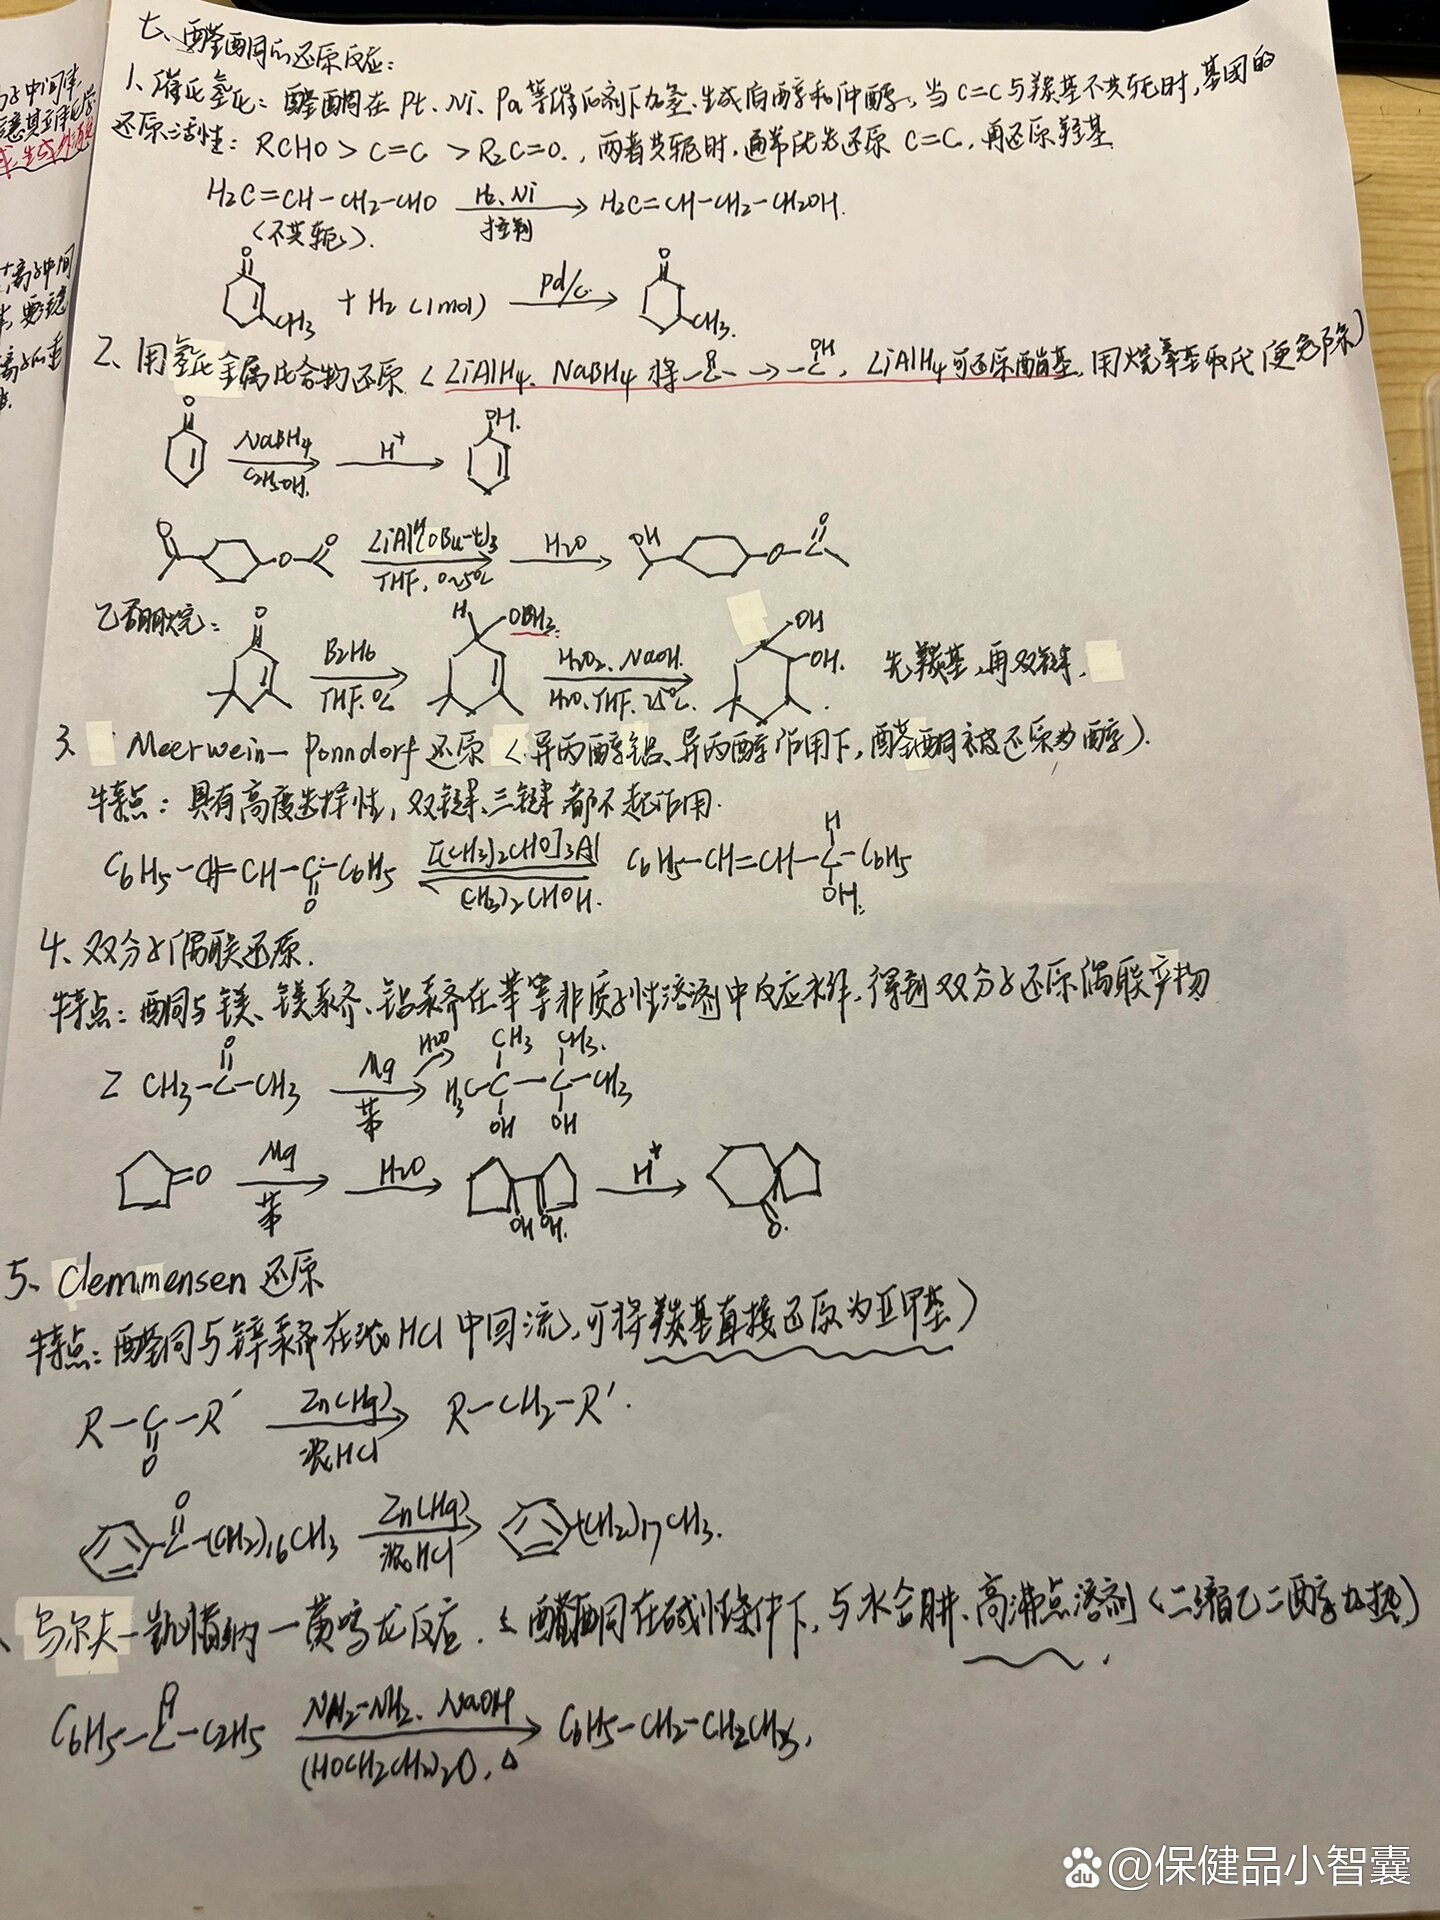 七、醛酮的还原反应:
1、催化氢化: 醛酮在 Pt、Ni、Pd 等催化剂下加氢、生成伯醇和仲醇。当 C=C 与羰基不共轭时, 基团的
还原活性: RCHO > C=C > R₂C=O., 两者共轭时, 通常优先还原 C=C, 再还原羟基
H₂C=CH-CH₂-CHO H₂、Ni 控制 H₂C=CH-CH₂-CH₂OH.
(不共轭).
O CH₃ + H₂ (1mol) Pd/C. O CH₃.
2、用氢化金属化合物还原 (LiAlH₄、NaBH₄ 将 -C- → -C-, OH LiAlH₄可还原酯基, 用烷氧基取代
O NaBH₄ C₂H₅OH. H⁺ OH.
O O O LiAlH(OBu-t)₃ THF, 0~5℃ H₂O OH O O
乙硼烷: O B₂H₆ THF. 0℃ H OBH₂ H₂O₂、NaOH. H₂O、THF. 25℃. OH OH. 先羰基, 再双键.
3、 Meerwein- Ponndorf 还原 (异丙醇铝、异丙醇作用下, 醛酮被还原为醇).
特点: 具有高度选择性, 双键、三键都不起作用.
C₆H₅-CH=CH-C-C₆H₅ O [(CH₃)₂CHO]₃Al (CH₃)₂CHOH. C₆H₅-CH=CH-C-C₆H₅ H OH.
4、双分子偶联还原.
特点: 酮与镁、镁汞齐、铝汞齐在苯等非质子性溶剂中反应水解, 得到双分子还原偶联产物
2 CH₃-C-CH₃ O Mg 苯 H₂O H₃C-C-C-CH₃ CH₃ CH₃. OH OH
=O Mg 苯 H₂O OH OH. H⁺ O.
5、Clemmensen 还原
特点: 醛同与锌汞齐在浓 HCl 中回流, 可将羰基直接还原为亚甲基)
R-C-R′ O Zn(Hg) 浓HCl R-CH₂-R′.
O C-(CH₂)₁₆CH₃ Zn(Hg) 浓HCl (CH₂)₁₇CH₃.
乌尔夫-凯惜纳-黄鸣龙反应. (醛酮在碱性条件下, 与水合肼、高沸点溶剂 (二缩乙二醇加热)
C₆H₅-C-C₂H₅ O NH₂-NH₂、NaOH (HOCH₂CH₂)₂O, Δ C₆H₅-CH₂-CH₂CH₃,
@保健品小智囊